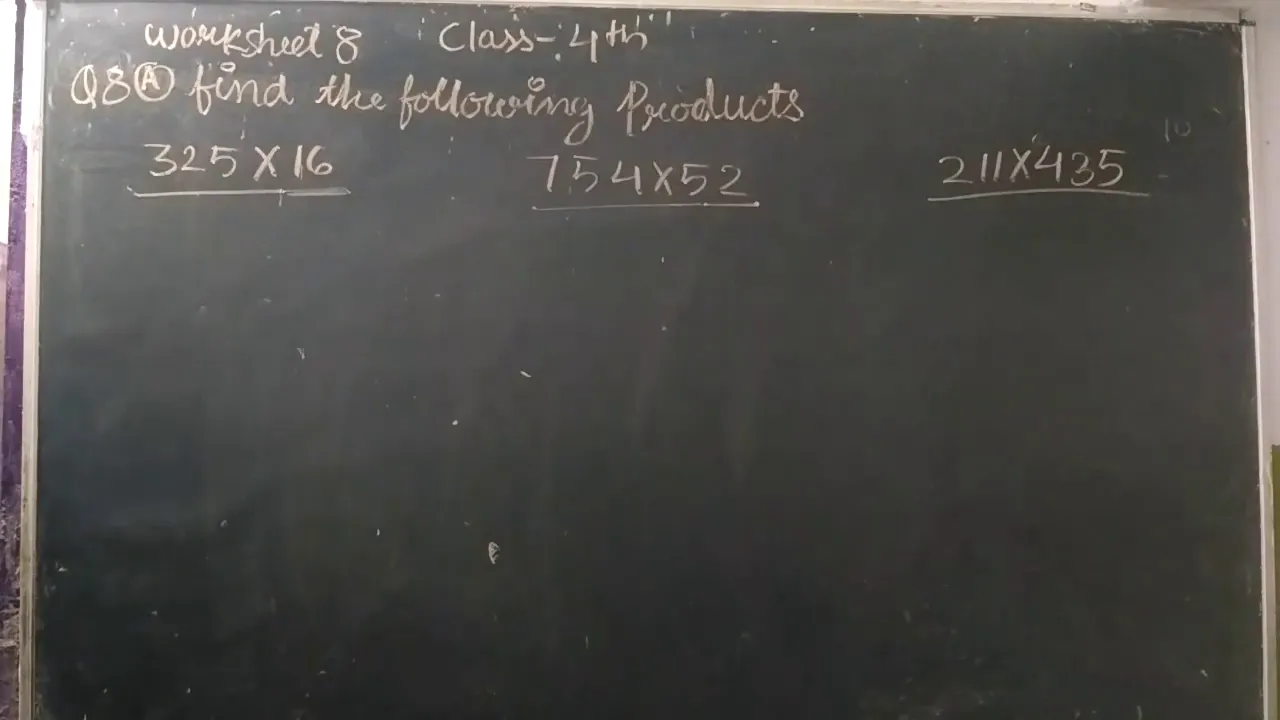 Worksheet 8 Class-4th
Q8 (A) find the following Products
325X16 754X52 211X435
10